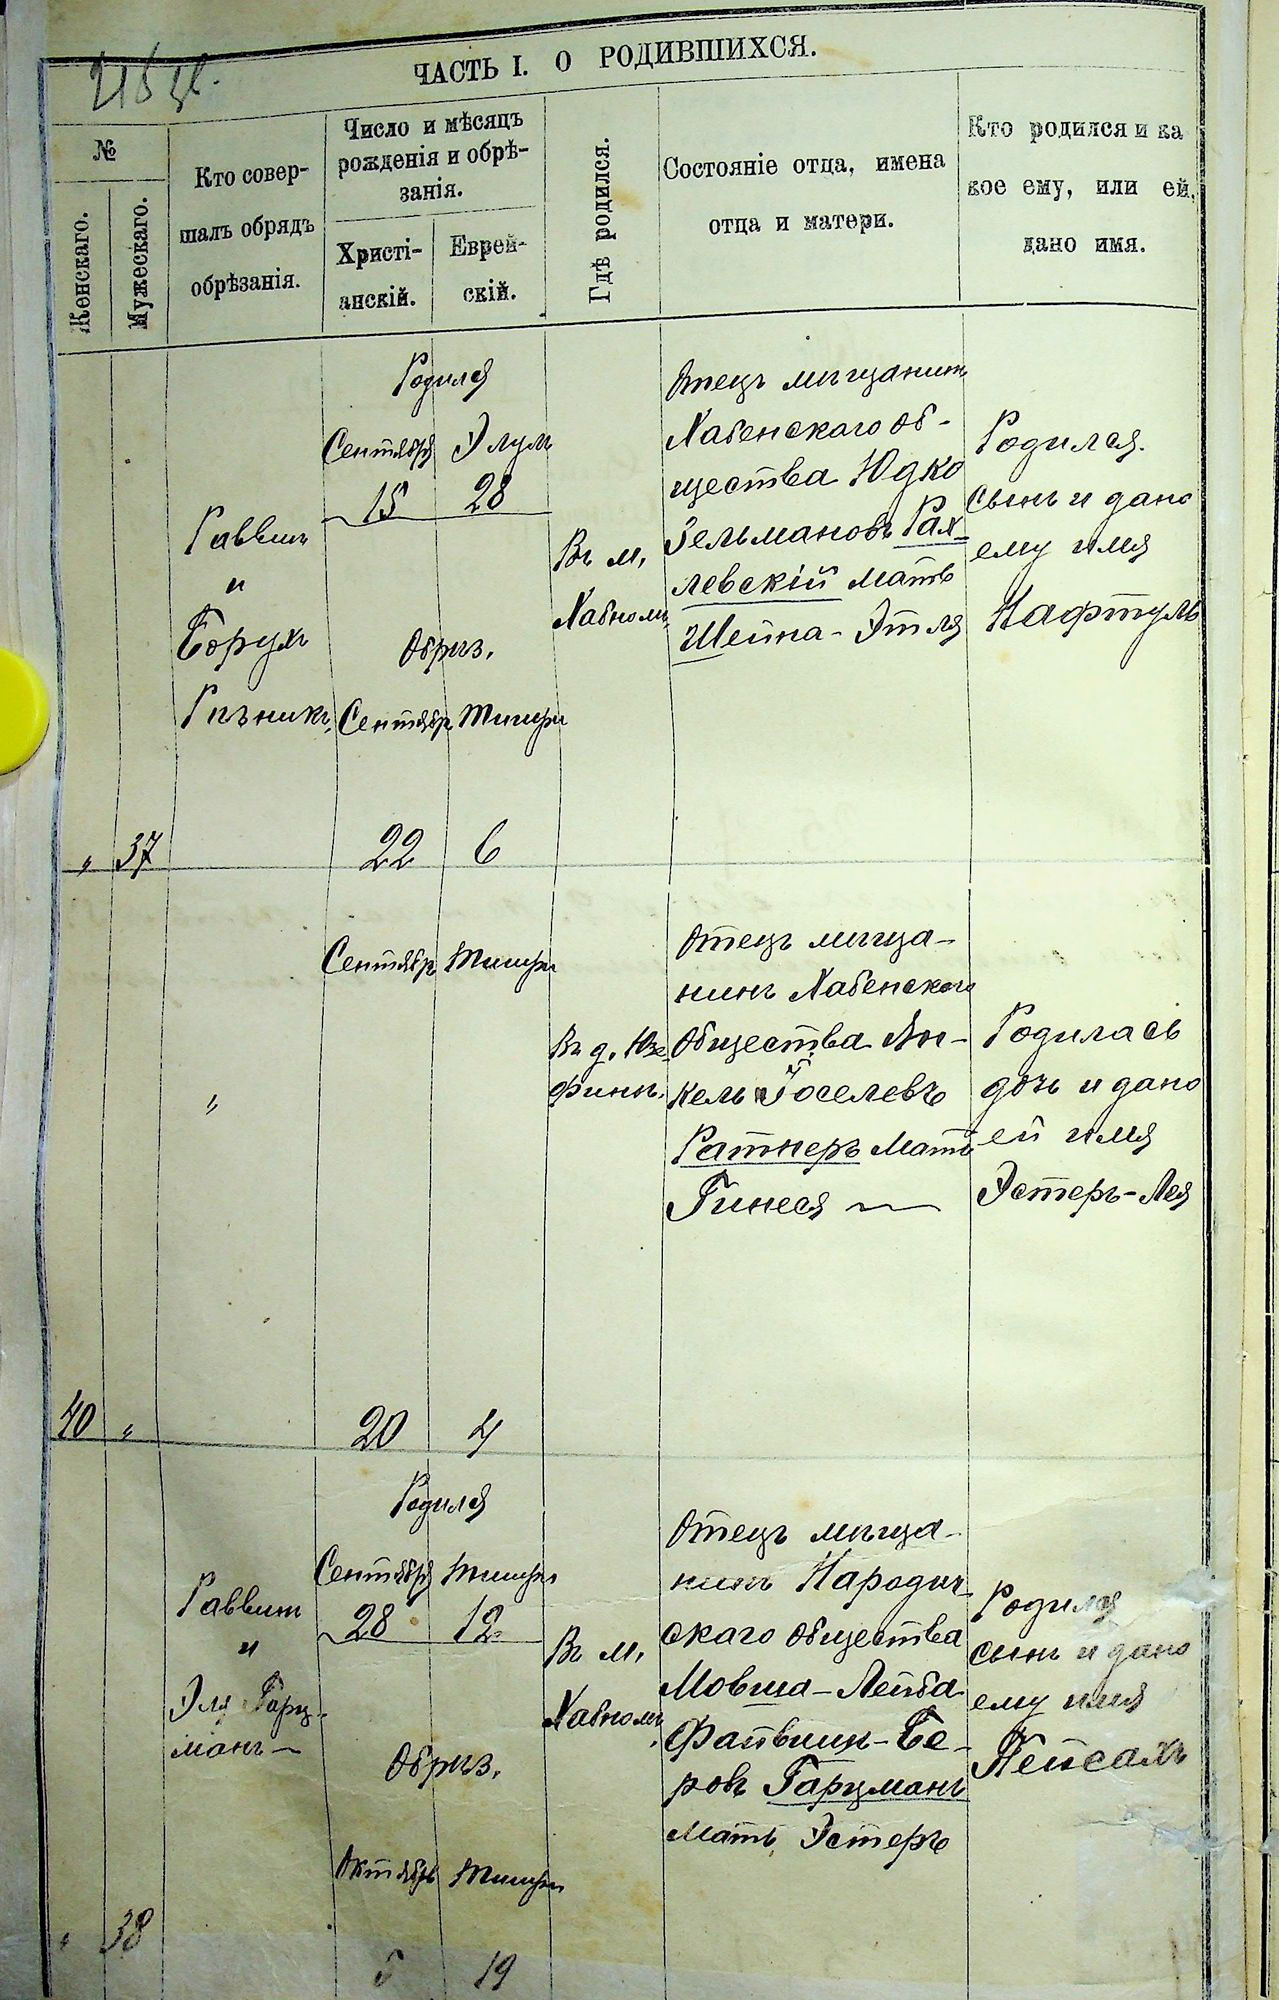 ЧАСТЬ I. О РОДИВШИХСЯ.
№
Женскаго.
Мужескаго.
Кто совер-
шалъ обрядъ
обрѣзанія.
Число и мѣсяцъ
рожденія и обрѣ-
занія.
Христі-
анскій.
Еврей-
скій.
Гдѣ родился.
Состояніе отца, имена
отца и матери.
Кто родился и ка
кое ему, или ей,
дано имя.
„ 37
Раввинъ
и
Борухъ
Рѣзникъ,
Родился
Сентября Элулъ
15 28
Обрѣз.
Сентябр Тишри
22 6
Въ м,
Хабномъ,
Отецъ мѣщанинъ
Хабенскаго об-
щества Юдко
Зельмановъ Рах-
левскій мать
Шейна-Этля
Родился
сынъ и дано
ему имя
Нафтулъ
40 „
„
Сентябр Тишри
20 4
Въ д. Юзе-
финъ,
Отецъ мѣща-
нинъ Хабенскаго
Общества Ян-
кель Іоселевъ
Ратнеръ мать
Гинеся —
Родилась
дочь и дано
ей имя
Эстеръ-Лея
„ 38
Раввинъ
и
Эля Гарц-
манъ —
Родился
Сентября Тишри
28 12
Обрѣз.
Октябрь Тишри
5 19
Въ м,
Хабномъ,
Отецъ мѣща-
нинъ Народич-
скаго общества
Мовша-Лейба
Файвишъ-Бе-
ровъ Гарцманъ
мать Эстеръ
Родился
сынъ и дано
ему имя
Пейсахъ